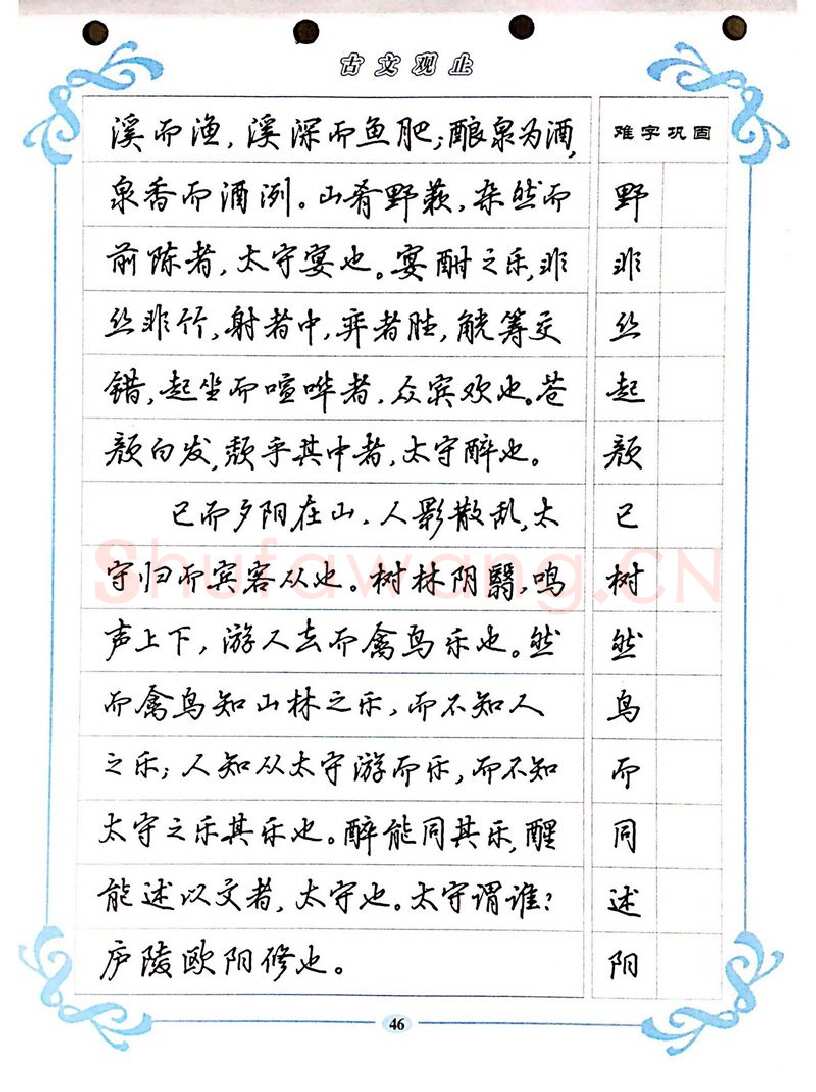 古文观止
溪而渔，溪深而鱼肥；酿泉为酒，
难字巩固
泉香而酒洌。山肴野蔌，杂然而
野
前陈者，太守宴也。宴酣之乐，非
非
丝非竹，射者中，弈者胜，觥筹交
丝
错，起坐而喧哗者，众宾欢也。苍
起
颜白发，颓乎其中者，太守醉也。
颜
已而夕阳在山，人影散乱，太
已
守归而宾客从也。树林阴翳，鸣
树
声上下，游人去而禽鸟乐也。然
然
而禽鸟知山林之乐，而不知人
鸟
之乐；人知从太守游而乐，而不知
而
太守之乐其乐也。醉能同其乐，醒
同
能述以文者，太守也。太守谓谁？
述
庐陵欧阳修也。
阳
Shufawang.CN
46